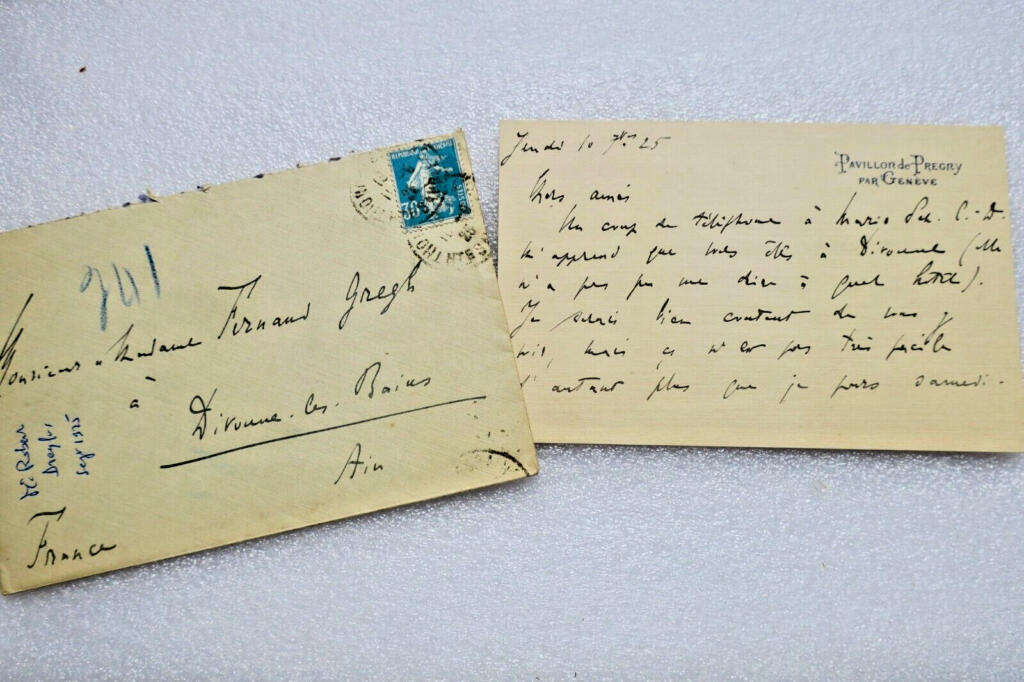 REPUBLIQUE FRANÇAISE
30
341
Monsieur & Madame Fernand Gregh
à
Divonne-les-Bains
Ain
France
Sept 1925
Jeudi 10 7bre 25
PAVILLON de PREGNY
PAR GENÈVE
Mes amis
Un coup de téléphone à Marie Sch. C.-D.
m'apprend que vous êtes à Divonne (elle
n'a pas pu me dire à quel hôtel).
Je serais bien content de vous y
voir, mais ce n'est pas très facile
d'autant plus que je pars samedi.